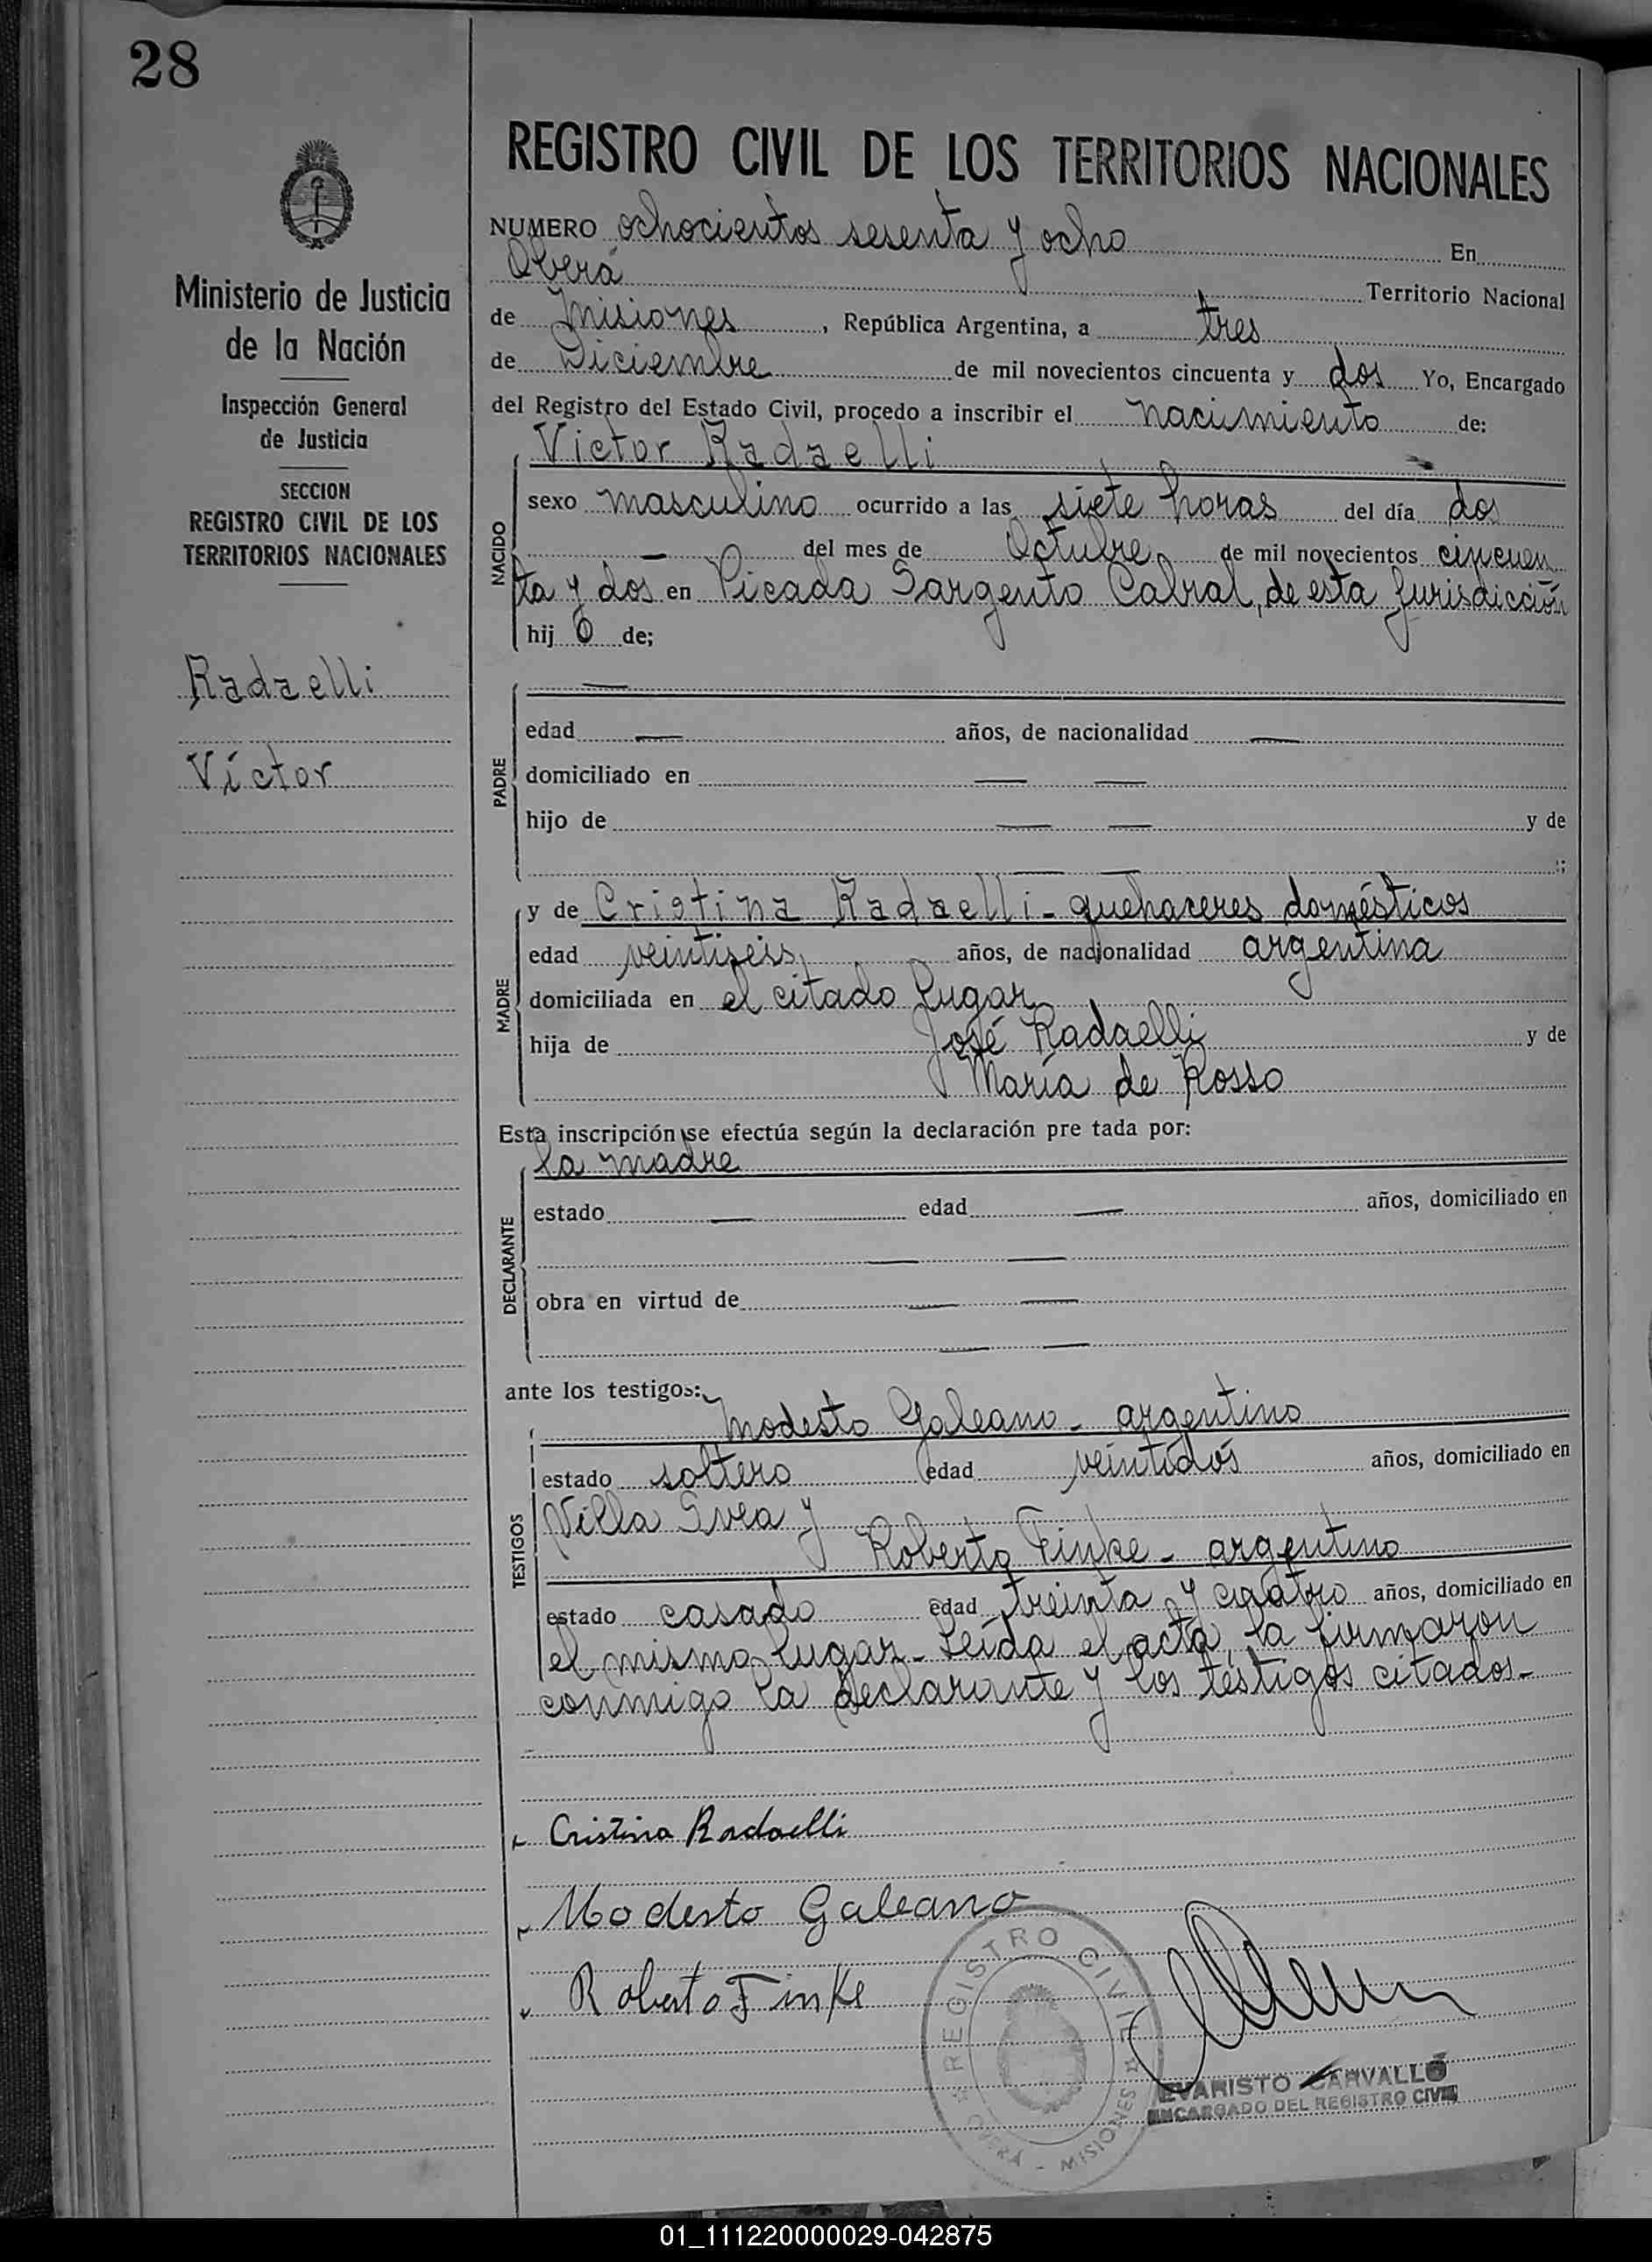 28
Ministerio de Justicia
de la Nación
Inspección General
de Justicia
SECCION
REGISTRO CIVIL DE LOS
TERRITORIOS NACIONALES
Radaelli
Víctor
REGISTRO CIVIL DE LOS TERRITORIOS NACIONALES
NUMERO ochocientos sesenta y ocho En
Oberá Territorio Nacional
de Misiones, República Argentina, a tres
de Diciembre de mil novecientos cincuenta y dos Yo, Encargado
del Registro del Estado Civil, procedo a inscribir el nacimiento de:
Víctor Radaelli
NACIDO
sexo masculino ocurrido a las siete horas del día dos
— del mes de Octubre de mil novecientos cincuen
ta y dos en Picada Sargento Cabral, de esta jurisdicción
hij o de;
PADRE
—
edad — años, de nacionalidad —
domiciliado en — —
hijo de — — y de
— — ;
MADRE
y de Cristina Radaelli - quehaceres domésticos
edad veintiseis años, de nacionalidad argentina
domiciliada en el citado lugar
hija de José Radaelli y de
María de Rosso
Esta inscripción se efectúa según la declaración pre tada por:
DECLARANTE
la madre
estado — edad — años, domiciliado en
— —
obra en virtud de — —
— —
ante los testigos:
TESTIGOS
Modesto Galeano - argentino
estado soltero edad veintidós años, domiciliado en
Villa Svea y
Roberto Finke - argentino
estado casado edad treinta y cuatro años, domiciliado en
el mismo lugar - Leída el acta, la firmaron
conmigo la declarante y los testigos citados.-
Cristina Radaelli
Modesto Galeano
Roberto Finke
REGISTRO CIVIL
OBERÁ - MISIONES
EVARISTO CARVALLO
ENCARGADO DEL REGISTRO CIVIL
01_111220000029-042875